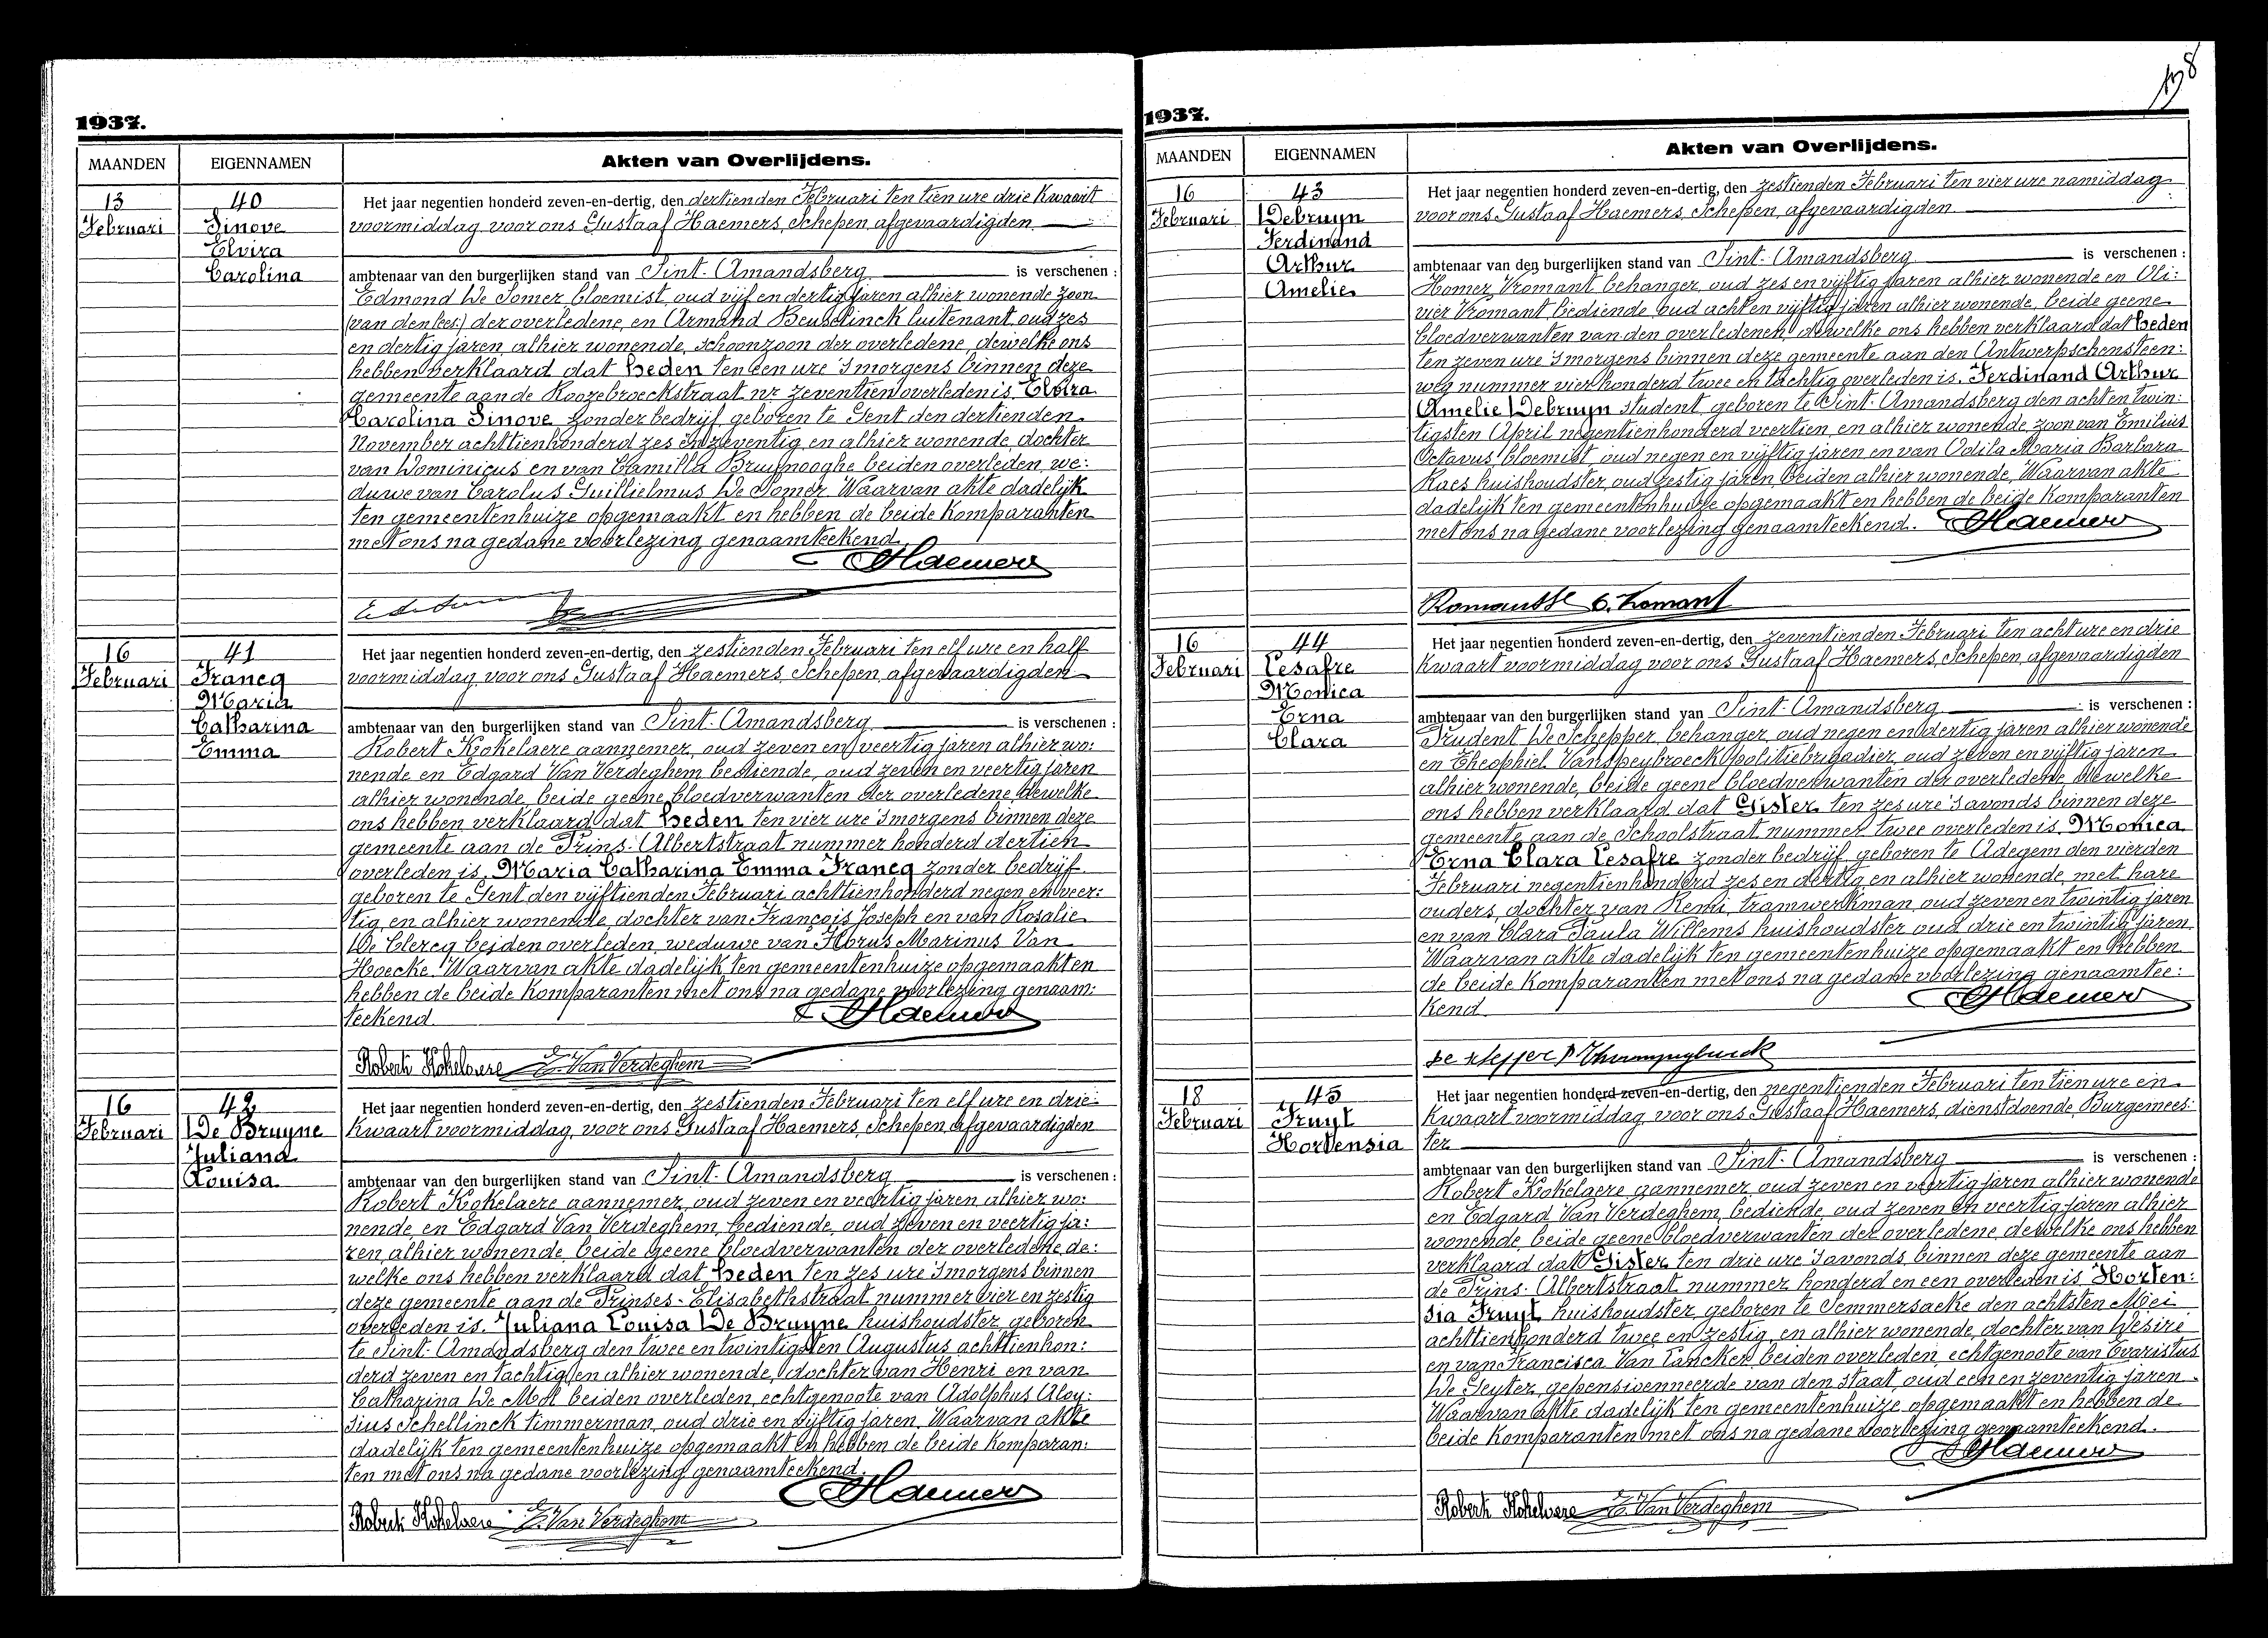 1937.
MAANDEN
EIGENNAMEN
Akten van Overlijdens.
13
Februari
40
Sinove
Elvira
Carolina
Het jaar negentien honderd zeven-en-dertig, den dertienden Februari ten tien ure drie kwaart
voormiddag voor ons Gustaaf Haemers, Schepen, afgevaardigden
ambtenaar van den burgerlijken stand van Sint-Amandsberg is verschenen :
Edmond De Somer bloemist, oud vijf en dertig jaren alhier wonende zoon
(van den lees:) der overledene, en Armand Beuselinck luitenant, oud zes
en dertig jaren, alhier wonende, schoonzoon der overledene, dewelke ons
hebben verklaard dat heden ten een ure 's morgens binnen deze
gemeente aan de Roozebroeckstraat nr zeventien overleden is, Elvira
Carolina Sinove, zonder bedrijf, geboren te Gent den dertienden
November achttienhonderd zes en zeventig, en alhier wonende, dochter
van Dominicus en van Camilla Bruynooghe beiden overleden, we:
duwe van Carolus Guillielmus De Somer. Waarvan akte dadelijk
ten gemeentenhuize opgemaakt en hebben de beide komparanten
met ons na gedane voorlezing genaamteekend.
Haemers
16
Februari
41
Francq
Maria
Catharina
Emma
Het jaar negentien honderd zeven-en-dertig, den zestienden Februari ten elf ure en half
voormiddag, voor ons Gustaaf Haemers, Schepen, afgevaardigden
ambtenaar van den burgerlijken stand van Sint-Amandsberg is verschenen :
Robert Kokelaere aannemer, oud zeven en veertig jaren alhier wo:
nende en Edgard Van Verdeghem bediende, oud zeven en veertig jaren
alhier wonende, beide geene bloedverwanten der overledene, dewelke
ons hebben verklaard dat heden ten vier ure 's morgens binnen deze
gemeente aan de Prins-Albertstraat nummer honderd dertien
overleden is, Maria Catharina Emma Francq zonder bedrijf
geboren te Gent den vijftienden Februari achttienhonderd negen en veer:
tig, en alhier wonende, dochter van François Joseph en van Rosalie
De Clercq beiden overleden, weduwe van Florus Marinus Van
Hoecke. Waarvan akte dadelijk ten gemeentenhuize opgemaakt en
hebben de beide komparanten met ons na gedane voorlezing genaam:
teekend.
Haemers
Robert Kokelaere E. Van Verdeghem
16
Februari
42
De Bruyne
Juliana
Louisa
Het jaar negentien honderd zeven-en-dertig, den zestienden Februari ten elf ure en drie
kwaart voormiddag, voor ons Gustaaf Haemers, Schepen, afgevaardigden
ambtenaar van den burgerlijken stand van Sint-Amandsberg is verschenen :
Robert Kokelaere aannemer, oud zeven en veertig jaren alhier wo:
nende, en Edgard Van Verdeghem, bediende, oud zeven en veertig ja:
ren alhier wonende, beide geene bloedverwanten der overledene, de:
welke ons hebben verklaard dat heden ten zes ure 's morgens binnen
deze gemeente aan de Prinses-Elisabethstraat nummer vier en zestig
overleden is. Juliana Louisa De Bruyne huishoudster, geboren
te Sint-Amandsberg den twee en twintigsten Augustus achttienhon:
derd zeven en tachtig, en alhier wonende, dochter van Henri en van
Catharina De Mol beiden overleden, echtgenoote van Adolphus Aloy:
sius Schellinck timmerman, oud drie en vijftig jaren. Waarvan akte
dadelijk ten gemeentenhuize opgemaakt en hebben de beide komparan:
ten met ons na gedane voorlezing genaamteekend.
Haemers
Robert Kokelaere E. Van Verdeghem
1937.
MAANDEN
EIGENNAMEN
Akten van Overlijdens.
16
Februari
43
Debruyn
Ferdinand
Arthur
Amelie
Het jaar negentien honderd zeven-en-dertig, den zestienden Februari ten vier ure namiddag
voor ons Gustaaf Haemers, Schepen, afgevaardigden
ambtenaar van den burgerlijken stand van Sint-Amandsberg is verschenen :
Homer Vromant behanger, oud zes en vijftig jaren alhier wonende en Oli:
vier Vromant, bediende, oud acht en vijftig jaren alhier wonende, beide geene
bloedverwanten van den overledenen, dewelke ons hebben verklaard dat heden
ten zeven ure 's morgens binnen deze gemeente aan den Antwerpschensteen:
weg nummer vier honderd twee en tachtig overleden is, Ferdinand Arthur
Amelie Debruyn student, geboren te Sint-Amandsberg den acht en twin:
tigsten April negentienhonderd veertien, en alhier wonende, zoon van Emilius
Octavus bloemist, oud negen en vijftig jaren en van Odila Maria Barbara
Raes huishoudster, oud zestig jaren, beiden alhier wonende, Waarvan akte
dadelijk ten gemeentenhuize opgemaakt en hebben de beide komparanten
met ons na gedane voorlezing genaamteekend.
Haemers
16
Februari
44
Lesafre
Monica
Erna
Clara
Het jaar negentien honderd zeven-en-dertig, den zeventienden Februari ten acht ure en drie
kwaart voormiddag voor ons Gustaaf Haemers, Schepen, afgevaardigden
ambtenaar van den burgerlijken stand van Sint-Amandsberg is verschenen :
Prudent De Schepper, behanger, oud negen en dertig jaren alhier wonende
en Theophiel Vanspeybroeck politiebrigadier, oud zeven en vijftig jaren
alhier wonende, beide geene bloedverwanten der overledene, dewelke
ons hebben verklaard dat Gister ten zes ure 's avonds binnen deze
gemeente aan de Schoolstraat nummer twee overleden is, Monica
Erna Clara Lesafre zonder bedrijf geboren te Adegem den vierden
Februari negentienhonderd zes en dertig en alhier wonende, met hare
ouders, dochter van Remi, tramwerkman, oud zeven en twintig jaren
en van Clara Paula Willems huishoudster oud drie en twintig jaren.
Waarvan akte dadelijk ten gemeentenhuize opgemaakt en hebben
de beide komparanten met ons na gedane voorlezing genaamtee:
kend.
Haemers
18
Februari
45
Fruyt
Hortensia
Het jaar negentien honderd zeven-en-dertig, den negentienden Februari ten tien ure een
kwaart voormiddag, voor ons Gustaaf Haemers, dienstdoende, Burgemees:
ter
ambtenaar van den burgerlijken stand van Sint-Amandsberg is verschenen :
Robert Kokelaere aannemer, oud zeven en veertig jaren alhier wonende
en Edgard Van Verdeghem, bediende, oud zeven en veertig jaren alhier
wonende, beide geene bloedverwanten der overledene dewelke ons hebben
verklaard dat Gister ten drie ure 's avonds, binnen deze gemeente aan
de Prins-Albertstraat nummer honderd en een overleden is Horten:
sia Fruyt, huishoudster, geboren te Semmersaeke den achtsten Mei
achttienhonderd twee en zestig, en alhier wonende, dochter van Desiré
en van Francisca Van Lancker beiden overleden, echtgenoote van Evaristus
De Geyter, gepensioenneerde van den staat, oud een en zeventig jaren.
Waarvan akte dadelijk ten gemeentenhuize opgemaakt en hebben de
beide komparanten met ons na gedane voorlezing genaamteekend.
Haemers
Robert Kokelaere E. Van Verdeghem